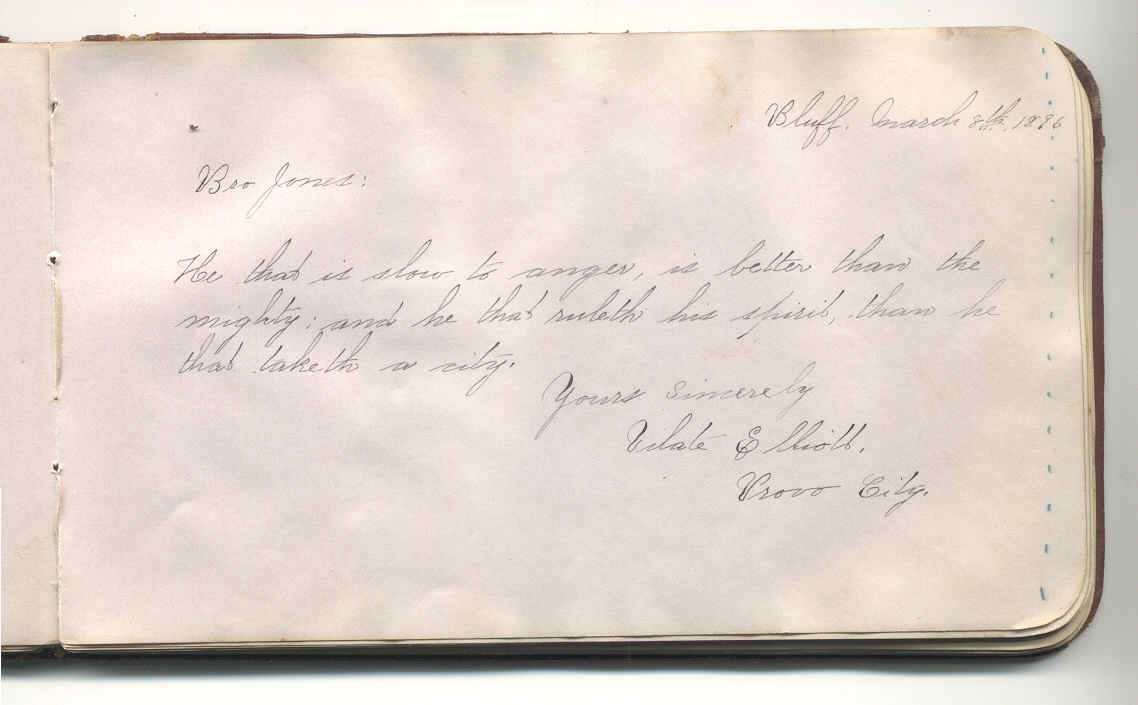 Bluff. March 8th, 1896
Bro Jones:
He that is slow to anger, is better than the
mighty; and he that ruleth his spirit, than he
that taketh a city.
Yours Sincerely
Vilate Elliott.
Provo City.